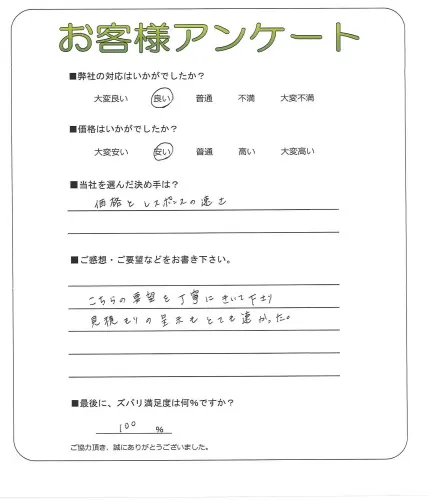 お客様アンケート
■弊社の対応はいかがでしたか？
大変良い 良い 普通 不満 大変不満
■価格はいかがでしたか？
大変安い 安い 普通 高い 大変高い
■当社を選んだ決め手は？
価格とレスポンスの速さ
■ご感想・ご要望などをお書き下さい。
こちらの要望を丁寧にきいて下さり
見積もりの呈示もとても速かった。
■最後に、ズバリ満足度は何％ですか？
100 ％
ご協力頂き、誠にありがとうございました。